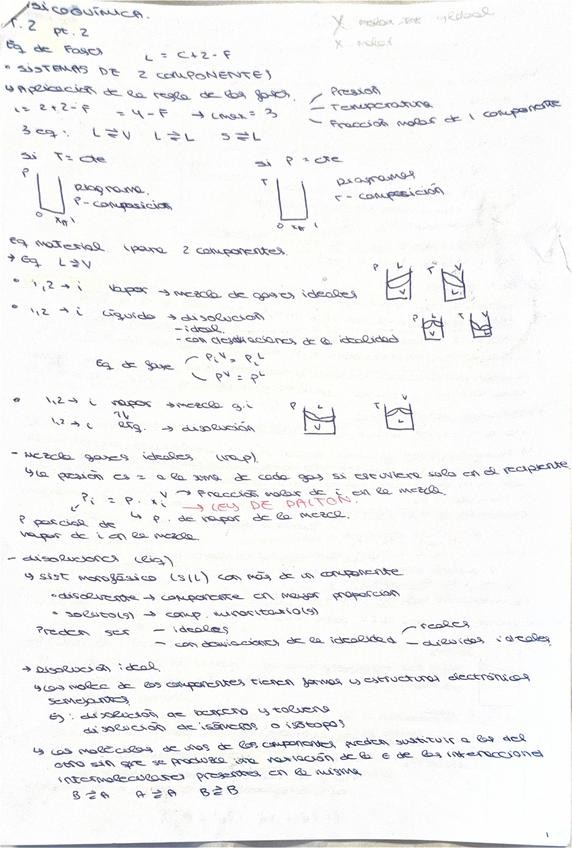 FISICOQUÍMICA.
T.2 pt. 2
Eq de Fases L = C+2-F
• SISTEMAS DE 2 COMPONENTES
↳ Aplicación de la regla de las fases.
L = 2+2-F = 4-F → Lmax = 3
Presión
Temperatura
Fracción molar de 1 componente
3 eq: L⇌V L⇌L S⇌L
Si T = cte
Si P = cte
P
Diagrama
P-composición
0 xA 1
T
Diagramas
T-composición
0 xA 1
eq material para 2 componentes.
→ Eq L⇌V
• 1,2 → i vapor → mezcla de gases ideales
P L V
T V L
• 1,2 → i líquido → disolución
- ideal.
- con desviaciones de la idealidad
P L V
T V L
Eq de fase
PiV = PiL
PV = PL
• 1,2 → i vapor → mezcla g.i
1,2 → i líq. → disolución
P L V
T V L
- Mezcla gases ideales (vap).
↳ La presión es = a la suma de cada gas si estuviera solo en el recipiente
Pi = P · xiV → Fracción molar de i en la mezcla.
→ LEY DE DALTON.
↳ P. de vapor de la mezcla.
P parcial de
vapor de i en la mezcla
- disoluciones (líq)
↳ Sist monofásico (S/L) con más de un componente
• disolvente → componente en mayor proporcion
• soluto(s) → comp. minoritario(s)
Pueden ser
- ideales
- con desviaciones de la idealidad
- reales
- diluidas ideales
→ Disolución ideal.
↳ Las moléc de los componentes tienen formas y estructuras electrónicas
semejantes
Ej: disolución de benceno y tolueno
disolución de isómeros o isótopos
↳ Las moléculas de unos de los componentes pueden sustituir a las del
otro sin que se produzca una variación de la E de las interacciones
intermoleculares presentes en la misma
B⇌A A⇌A B⇌B
1